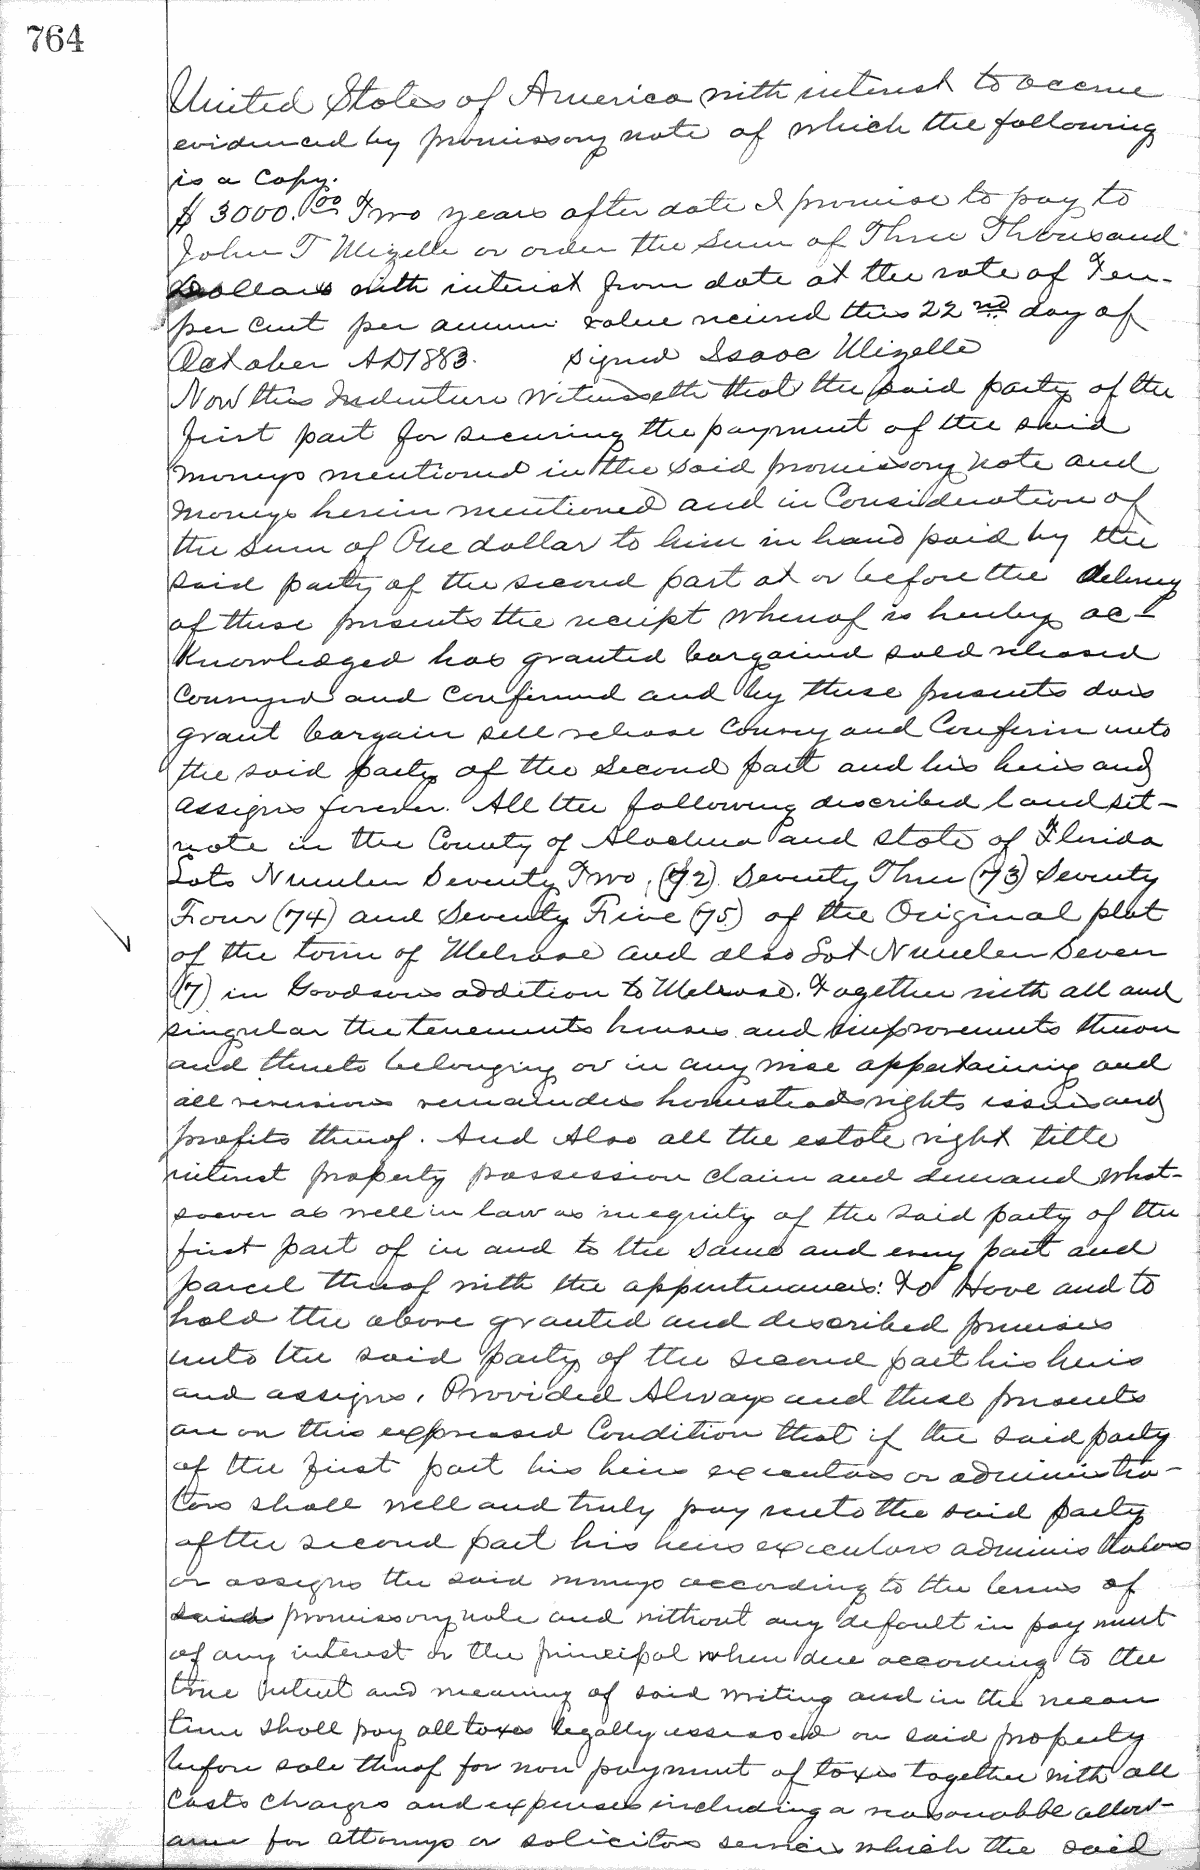 764
United States of America with interest to accrue
evidenced by promissory note of which the following
is a copy.
$ 3000.00 Two years after date I promise to pay to
John T Mizelle or order the Sum of Three Thousand
Dollars with interest from date at the rate of Ten
per cent per annum value recieved this 22nd day of
October AD1883. Signed Isaac Mizelle
Now this Indenture Witnesseth that the said party of the
first part for securing the payment of the said
moneys mentioned in the said promissory note and
moneys herein mentioned and in Consideration of
the Sum of One dollar to him in hand paid by the
said party of the second part at or before the delivery
of these presents the receipt whereof is hereby ac-
Knowledged has granted bargained sold released
conveyed and confirmed and by these presents does
grant bargain sell release Convey and Confirm unto
the said party of the Second part and his heirs and
assigns forever. All the following described land sit-
uate in the County of Alachua and State of Florida
Lots Number Seventy Two, (72) Seventy Three (73) Seventy
Four (74) and Seventy Five (75) of the Original plat
of the town of Melrose and also Lot Number Seven
(7) in Goodsons addition to Melrose. Together with all and
singular the tenements houses and improvements thereon
and thereto belonging or in any wise appertaining and
all reversions remainders homestead rights issues and
profits thereof. And Also all the estate right title
interest property possession claim and demand what-
soever as well in law as in equity of the said party of the
first part of in and to the same and every part and
parcel thereof with the appurtenances: To Have and to
hold the above granted and described premises
unto the said party of the second part his heirs
and assigns, Provided Always and these presents
are on this expressed Condition that if the said party
of the first part his heirs executors or administra-
tors shall well and truly pay unto the said party
of the second part his heirs executors administrators
or assigns the said moneys according to the terms of
said promissory note and without any default in payment
of any interest or the principal when due according to the
true intent and meaning of said writing and in the mean
time shall pay all taxes legally assessed on said property
before sale thereof for non payment of taxes together with all
Costs Charges and expenses including a reasonable allow-
ance for attorneys or solicitors services which the said